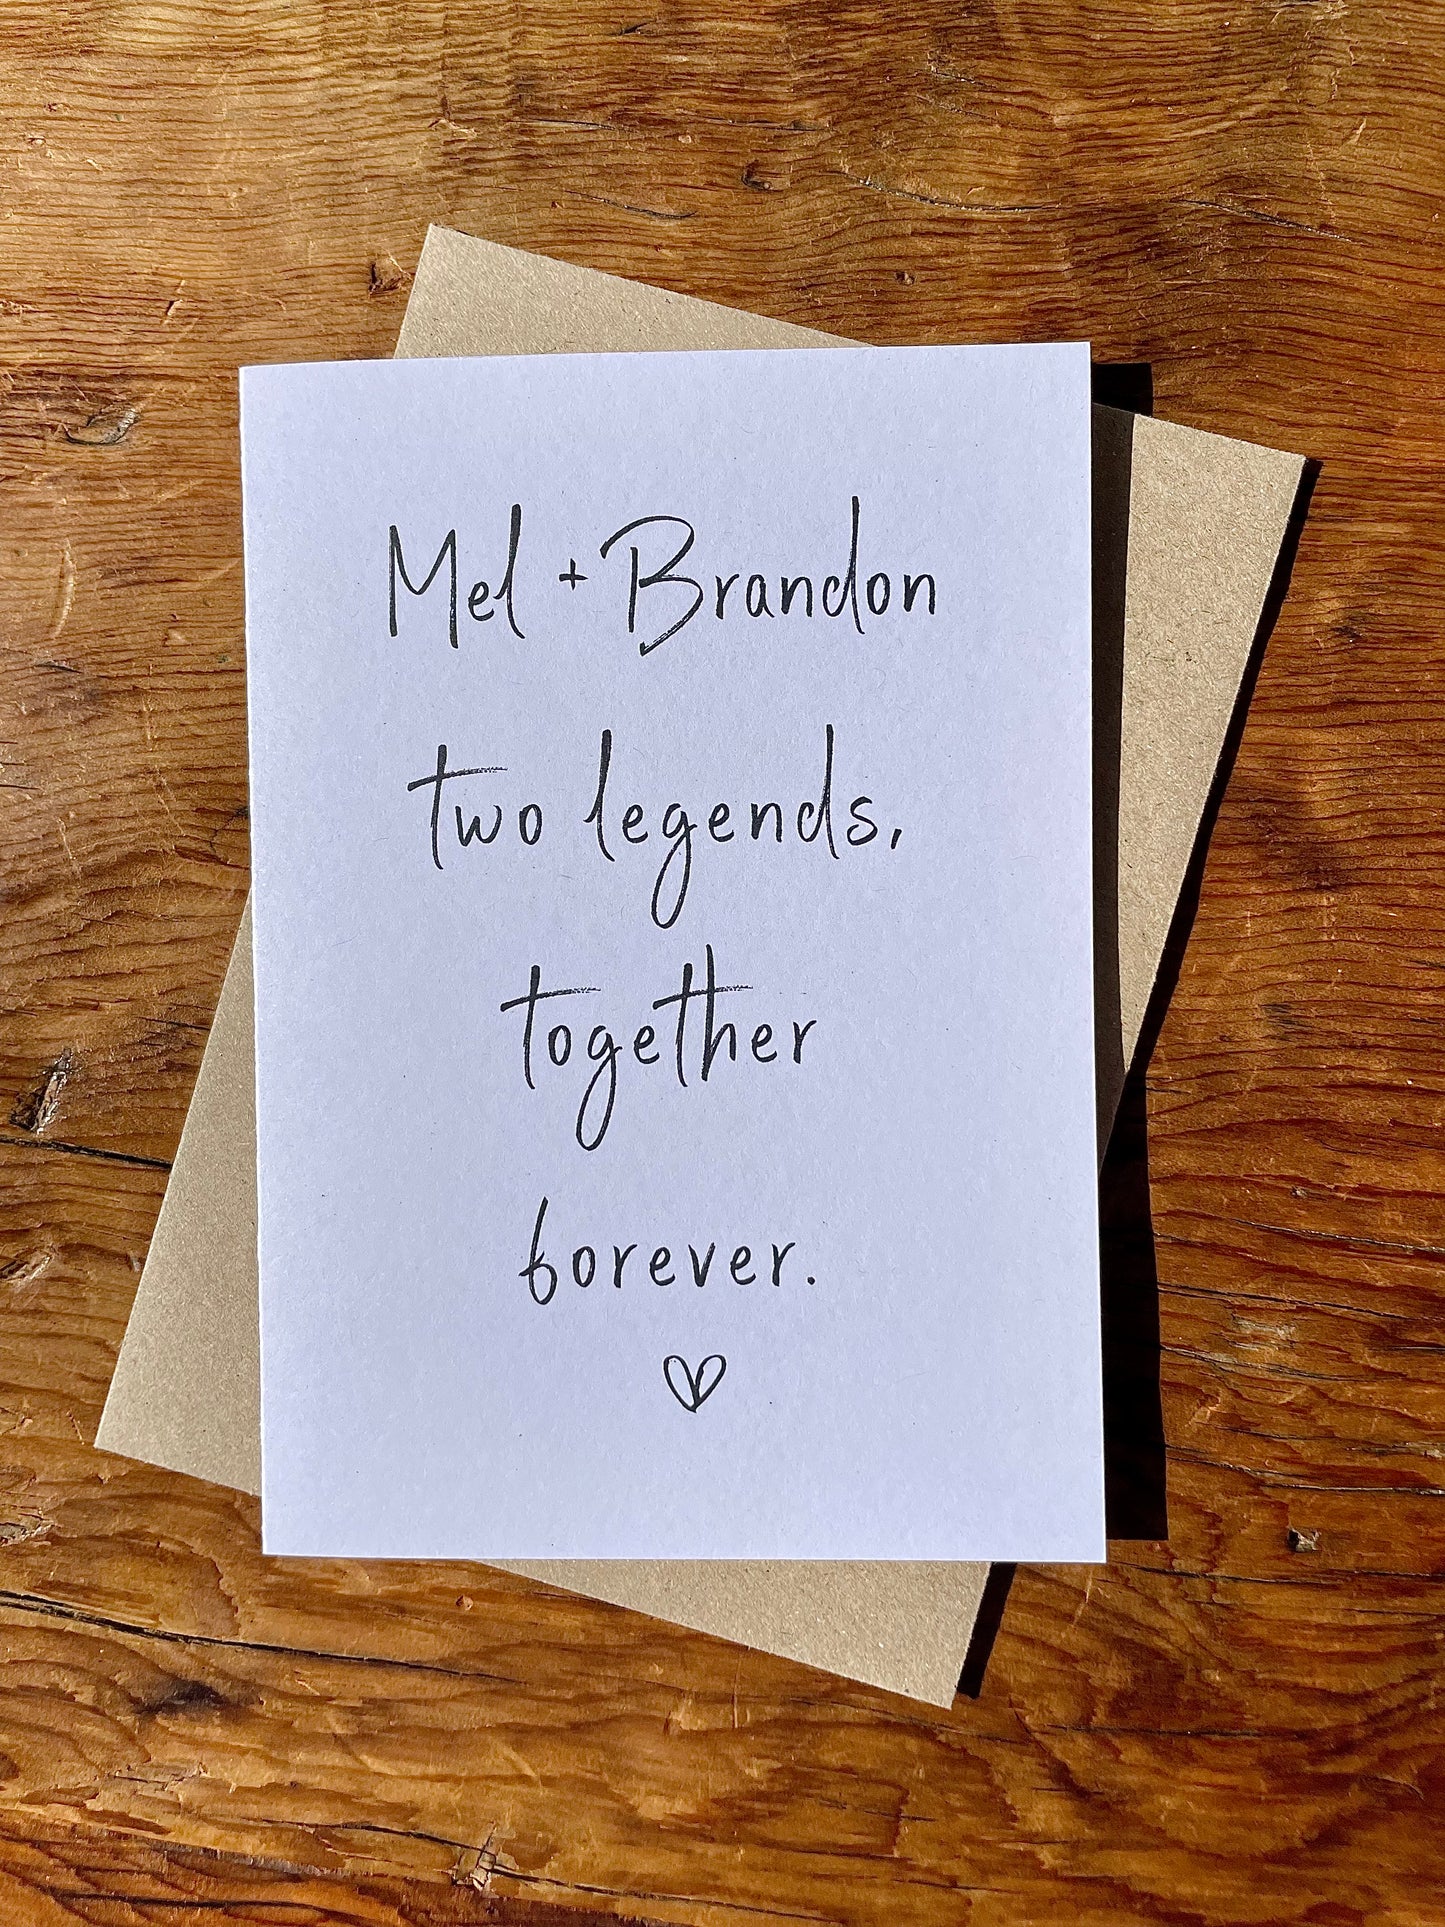 Mel + Brandon
two legends,
together
forever.